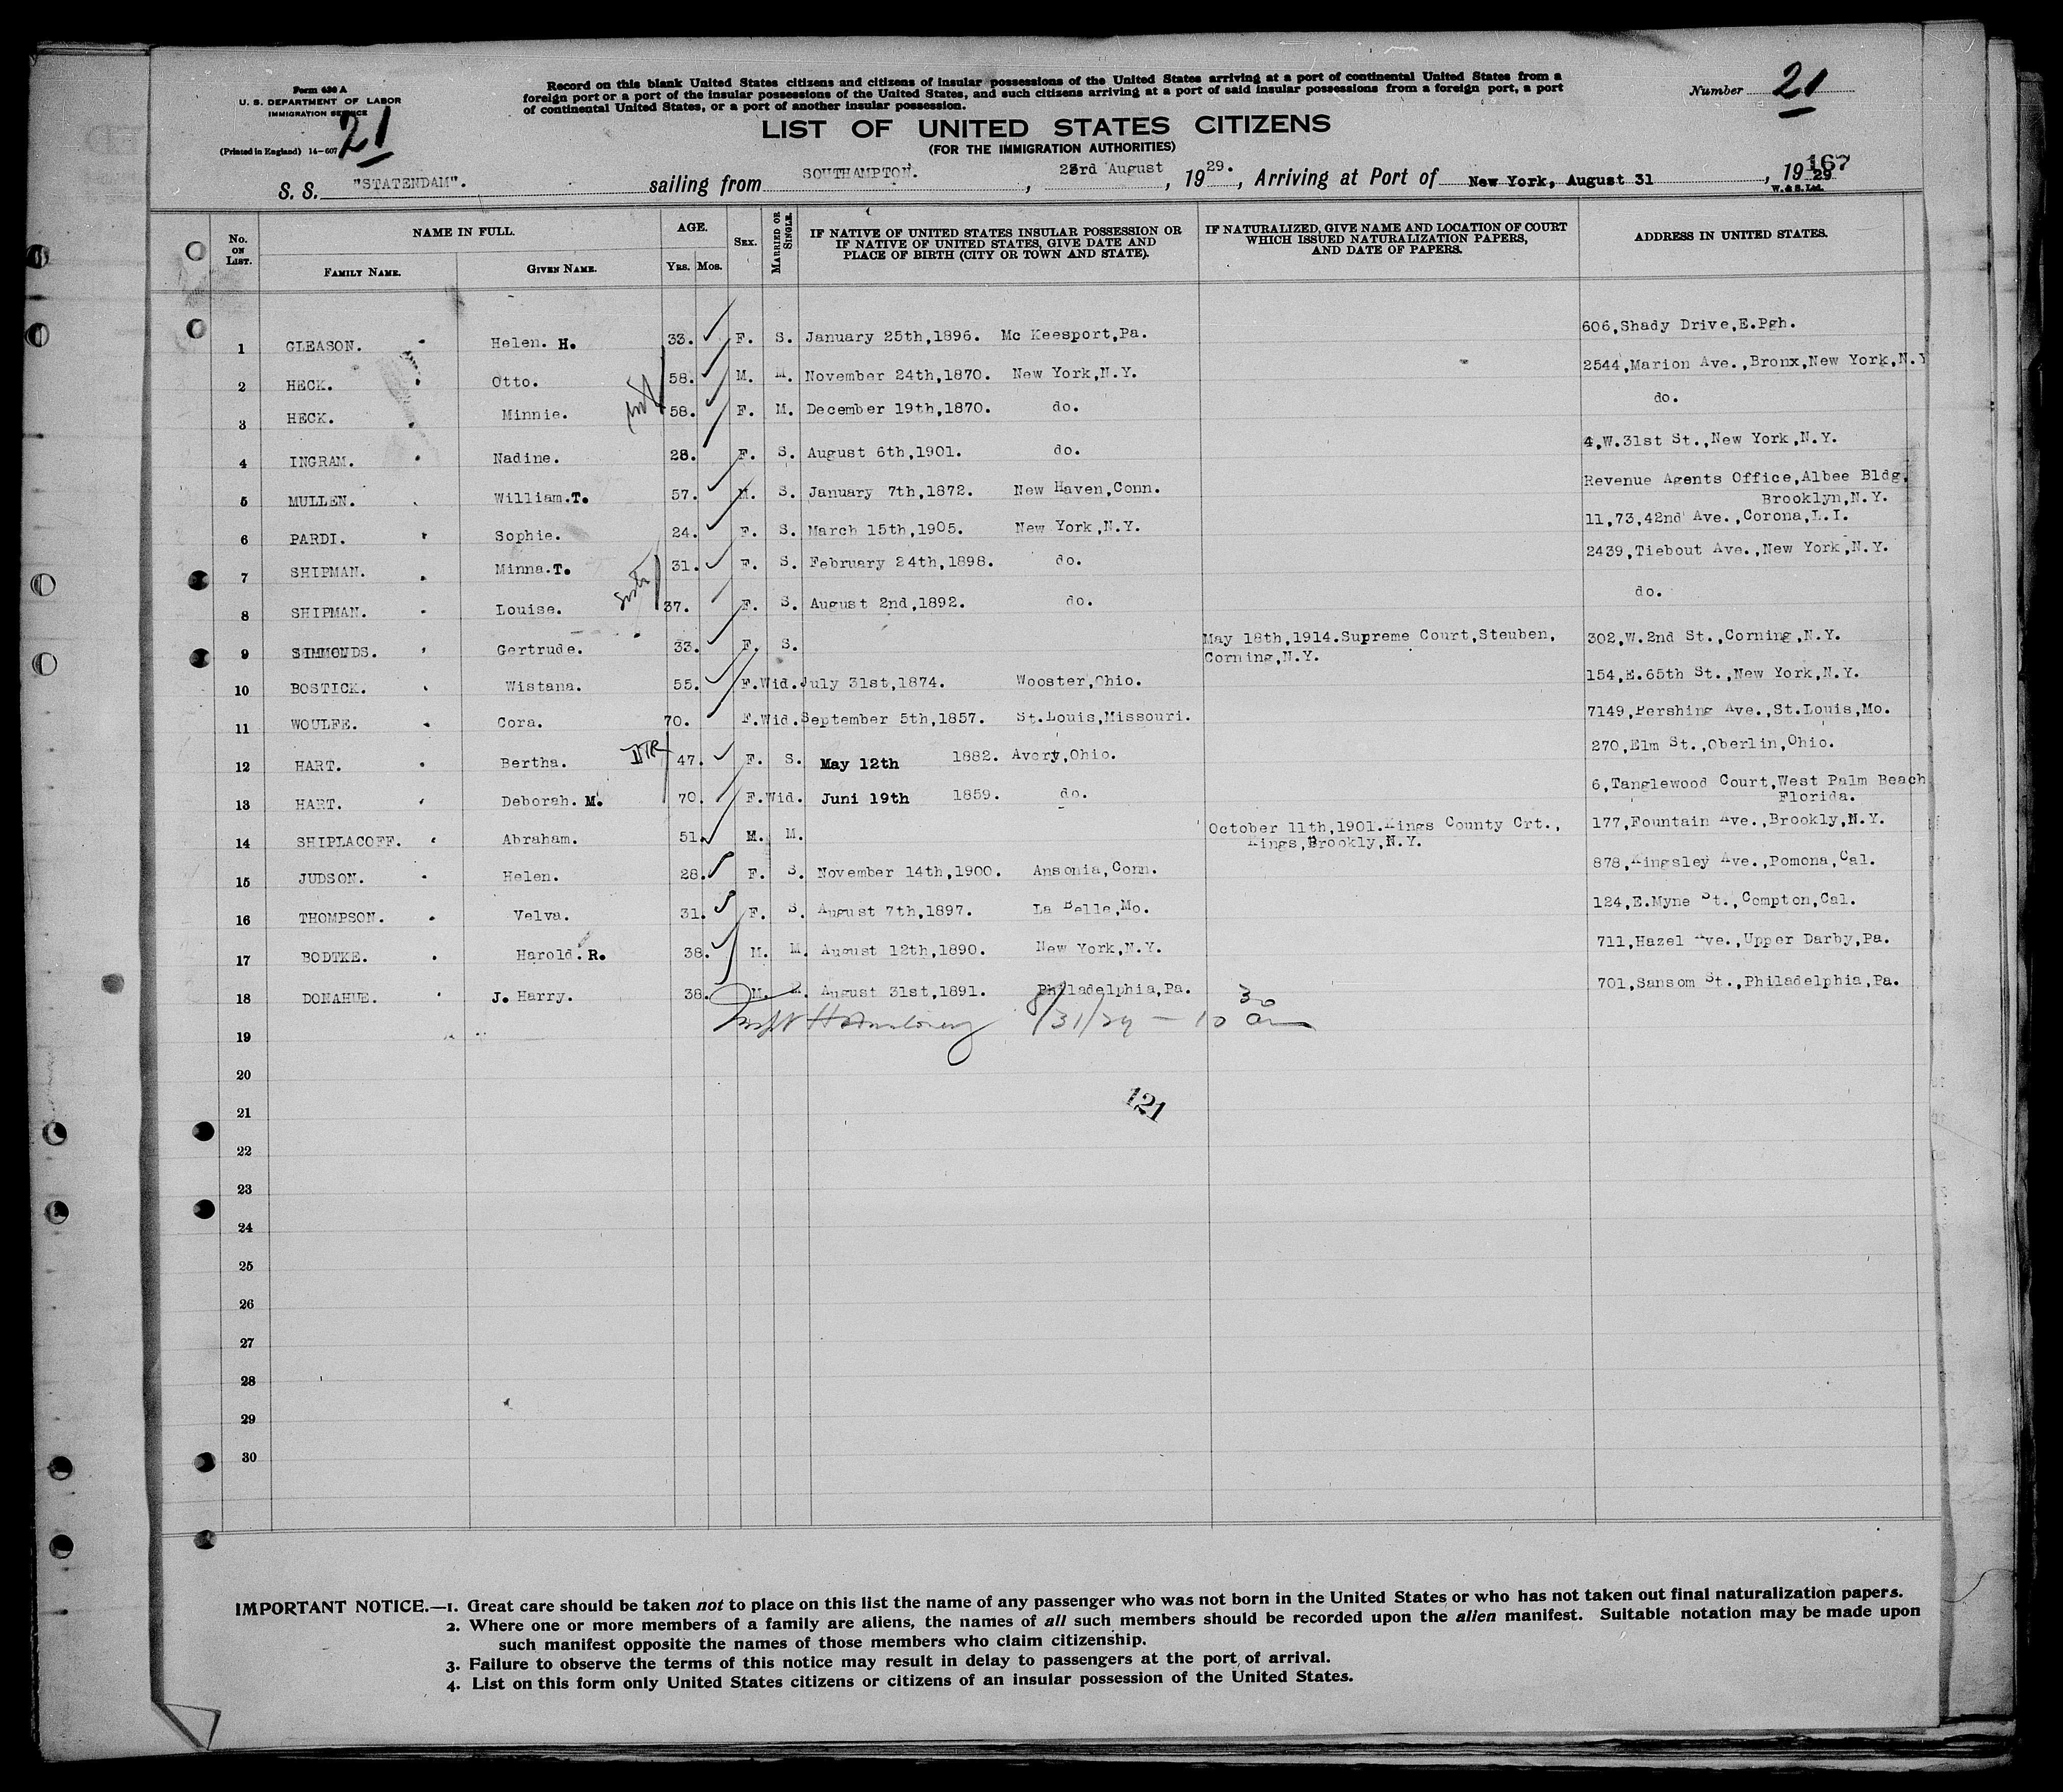 Form 630 A
U. S. DEPARTMENT OF LABOR
IMMIGRATION SERVICE
(Printed in England) 14-607
21
Record on this blank United States citizens and citizens of insular possessions of the United States arriving at a port of continental United States from a
foreign port or a port of the insular possessions of the United States, and such citizens arriving at a port of said insular possessions from a foreign port, a port
of continental United States, or a port of another insular possession.
Number 21
LIST OF UNITED STATES CITIZENS
(FOR THE IMMIGRATION AUTHORITIES)
167
S. S. "STATENDAM". sailing from SOUTHAMPTON. , 23rd August , 1929. , Arriving at Port of New York, August 31 , 1929
W. & S. Ltd.
No. ON LIST. NAME IN FULL. FAMILY NAME. GIVEN NAME. AGE. YRS. MOS. SEX. MARRIED OR SINGLE. IF NATIVE OF UNITED STATES INSULAR POSSESSION OR IF NATIVE OF UNITED STATES, GIVE DATE AND PLACE OF BIRTH (CITY OR TOWN AND STATE). IF NATURALIZED, GIVE NAME AND LOCATION OF COURT WHICH ISSUED NATURALIZATION PAPERS, AND DATE OF PAPERS. ADDRESS IN UNITED STATES.
1 GLEASON. Helen. H. 33. F. S. January 25th,1896. Mc Keesport,Pa. 606,Shady Drive,E.Pgh.
2 HECK. Otto. 58. M. M. November 24th,1870. New York,N.Y. 2544,Marion Ave.,Bronx,New York,N.Y
3 HECK. Minnie. 58. F. M. December 19th,1870. do. do.
4 INGRAM. Nadine. 28. F. S. August 6th,1901. do. 4,W.31st St.,New York,N.Y.
5 MULLEN. William.T. 57. M. S. January 7th,1872. New Haven,Conn. Revenue Agents Office,Albee Bldg,
Brooklyn,N.Y.
6 PARDI. Sophie. 24. F. S. March 15th,1905. New York,N.Y. 11,73,42nd Ave.,Corona,L.I.
7 SHIPMAN. Minna.T. 31. F. S. February 24th,1898. do. 2439,Tiebout Ave.,New York,N.Y.
8 SHIPMAN. Louise. 37. F. S. August 2nd,1892. do. do.
9 SIMMONDS. Gertrude. 33. F. S. May 18th,1914.Supreme Court,Steuben, 302,W.2nd St.,Corning,N.Y.
Corning,N.Y.
10 BOSTICK. Wistana. 55. F. Wid. July 31st,1874. Wooster,Ohio. 154,E.65th St.,New York,N.Y.
11 WOULFE. Cora. 70. F. Wid. September 5th,1857. St.Louis,Missouri. 7149,Pershing Ave.,St.Louis,Mo.
12 HART. Bertha. 47. F. S. May 12th 1882. Avery,Ohio. 270,Elm St.,Oberlin,Ohio.
13 HART. Deborah. M. 70. F. Wid. Juni 19th 1859. do. 6,Tanglewood Court,West Palm Beach
Florida.
14 SHIPLACOFF. Abraham. 51. M. M. October 11th,1901.Kings County Crt., 177,Fountain Ave.,Brookly,N.Y.
Kings,Brookly,N.Y.
15 JUDSON. Helen. 28. F. S. November 14th,1900. Ansonia,Conn. 878,Kingsley Ave.,Pomona,Cal.
16 THOMPSON. Velva. 31. F. S. August 7th,1897. La Belle,Mo. 124,E.Myne St.,Compton,Cal.
17 BODTKE. Harold. R. 38. M. M. August 12th,1890. New York,N.Y. 711,Hazel Ave.,Upper Darby,Pa.
18 DONAHUE. J. Harry. 38. M. M. August 31st,1891. Philadelphia,Pa. 701,Sansom St.,Philadelphia,Pa.
8/31/29 — 10 30 am
19
20
121
21
22
23
24
25
26
27
28
29
30
IMPORTANT NOTICE.—1. Great care should be taken not to place on this list the name of any passenger who was not born in the United States or who has not taken out final naturalization papers.
2. Where one or more members of a family are aliens, the names of all such members should be recorded upon the alien manifest. Suitable notation may be made upon
such manifest opposite the names of those members who claim citizenship.
3. Failure to observe the terms of this notice may result in delay to passengers at the port of arrival.
4. List on this form only United States citizens or citizens of an insular possession of the United States.